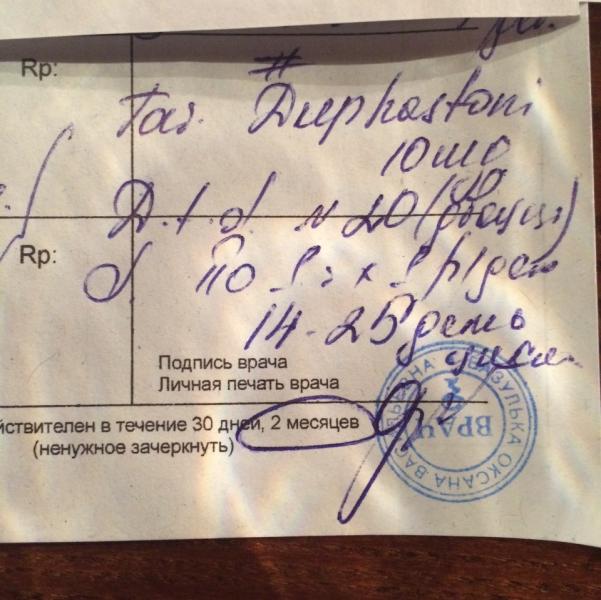 Rp:
#
Tab. Duphastoni
10 mg
D.t.d. N 20 (двадцать)
Rp:
S. по 1т х 2 р/день
14-25 день
цикла
Подпись врача
Личная печать врача
йствителен в течение 30 дней, 2 месяцев
(ненужное зачеркнуть)
ВРАЧ
ОКСАНА